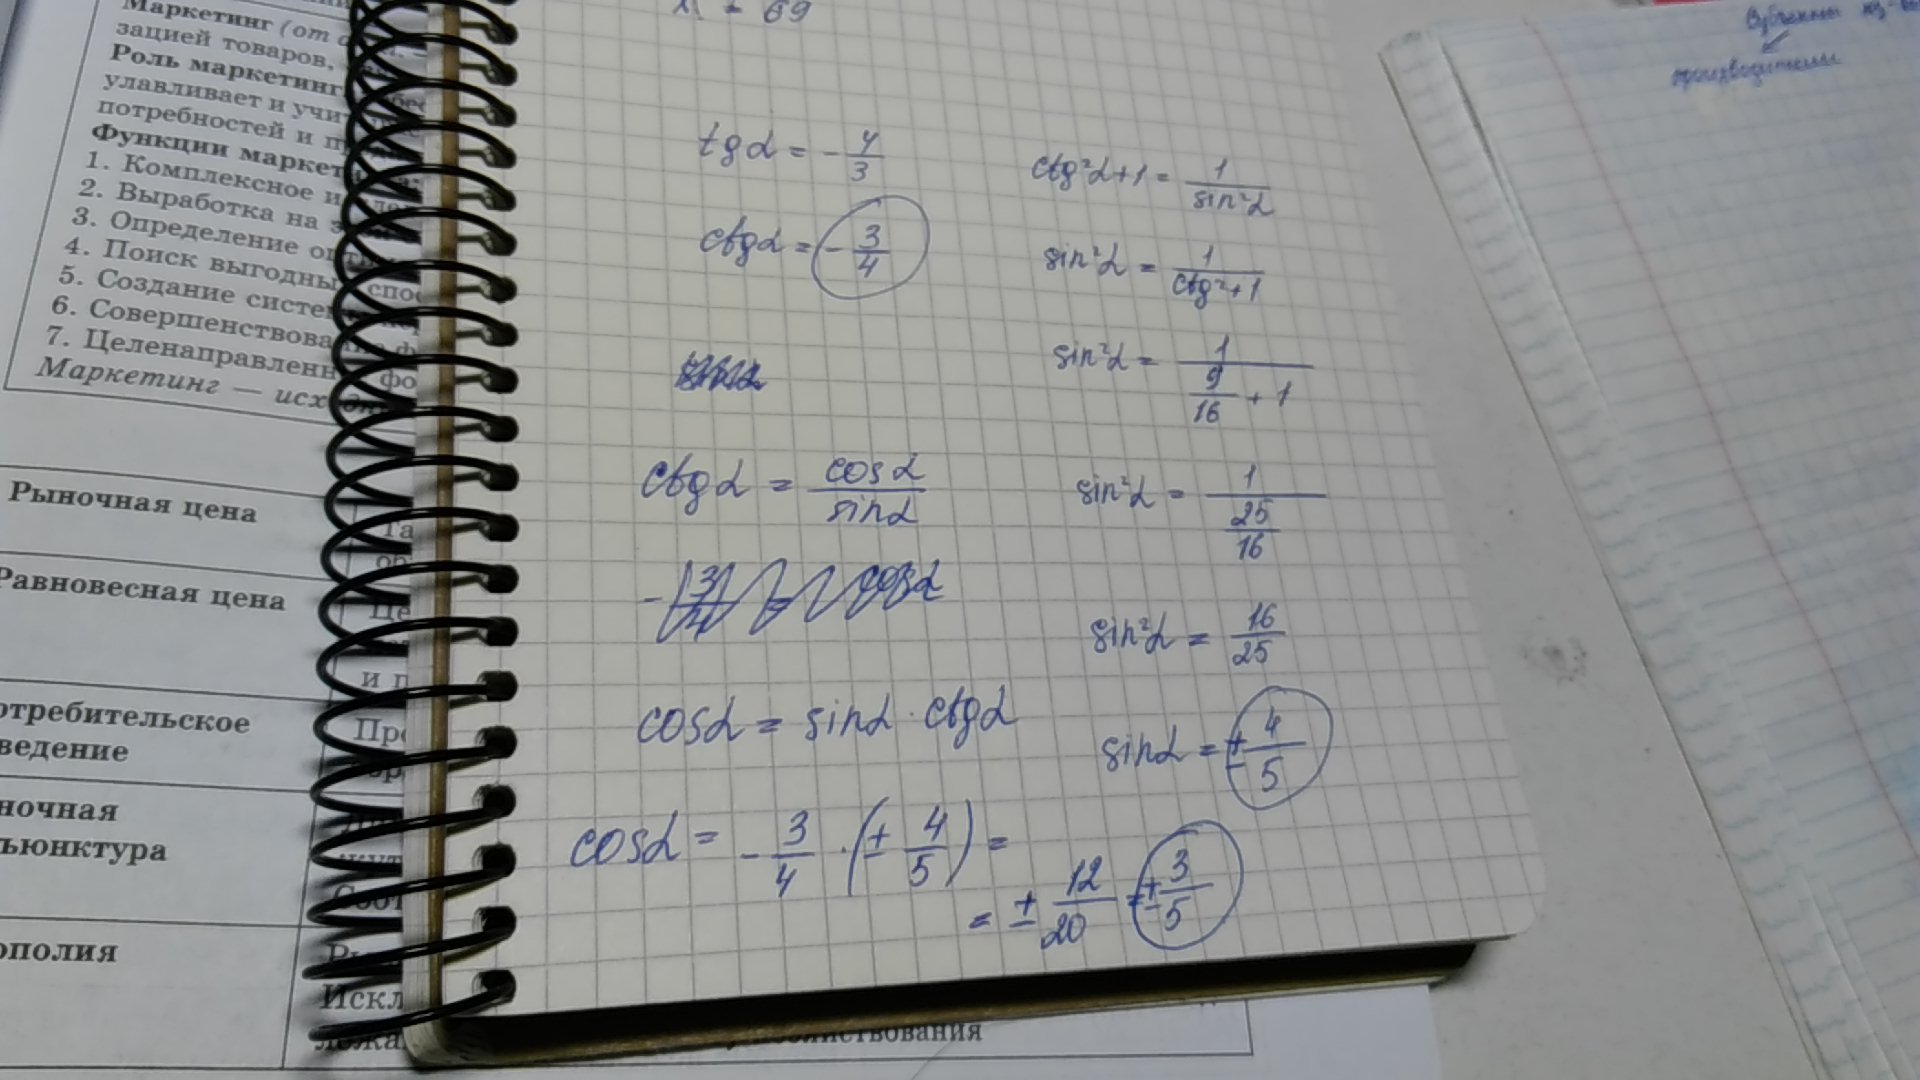 Маркетинг (от
зацией товаров,
Роль маркетинг
улавливает и учи
потребностей и п
Функции маркет
1. Комплексное и
2. Выработка на
3. Определение
4. Поиск выгодны
5. Создание систе
6. Совершенствова
7. Целенаправленн
Маркетинг — исх
Рыночная цена
Равновесная цена
и п
отребительское
ведение
ночная
ъюнктура
ополия
Искл
= 69
tgα = - 4/3
ctgα = - 3/4
ctgα = cosα/sinα
cosα = sinα · ctgα
cosα = - 3/4 · (± 4/5) =
= ± 12/20 = ± 3/5
ctg²α + 1 = 1/sin²α
sin²α = 1/(ctg² + 1)
sin²α = 1/(9/16 + 1)
sin²α = 1/(25/16)
sin²α = 16/25
sinα = ± 4/5
производители